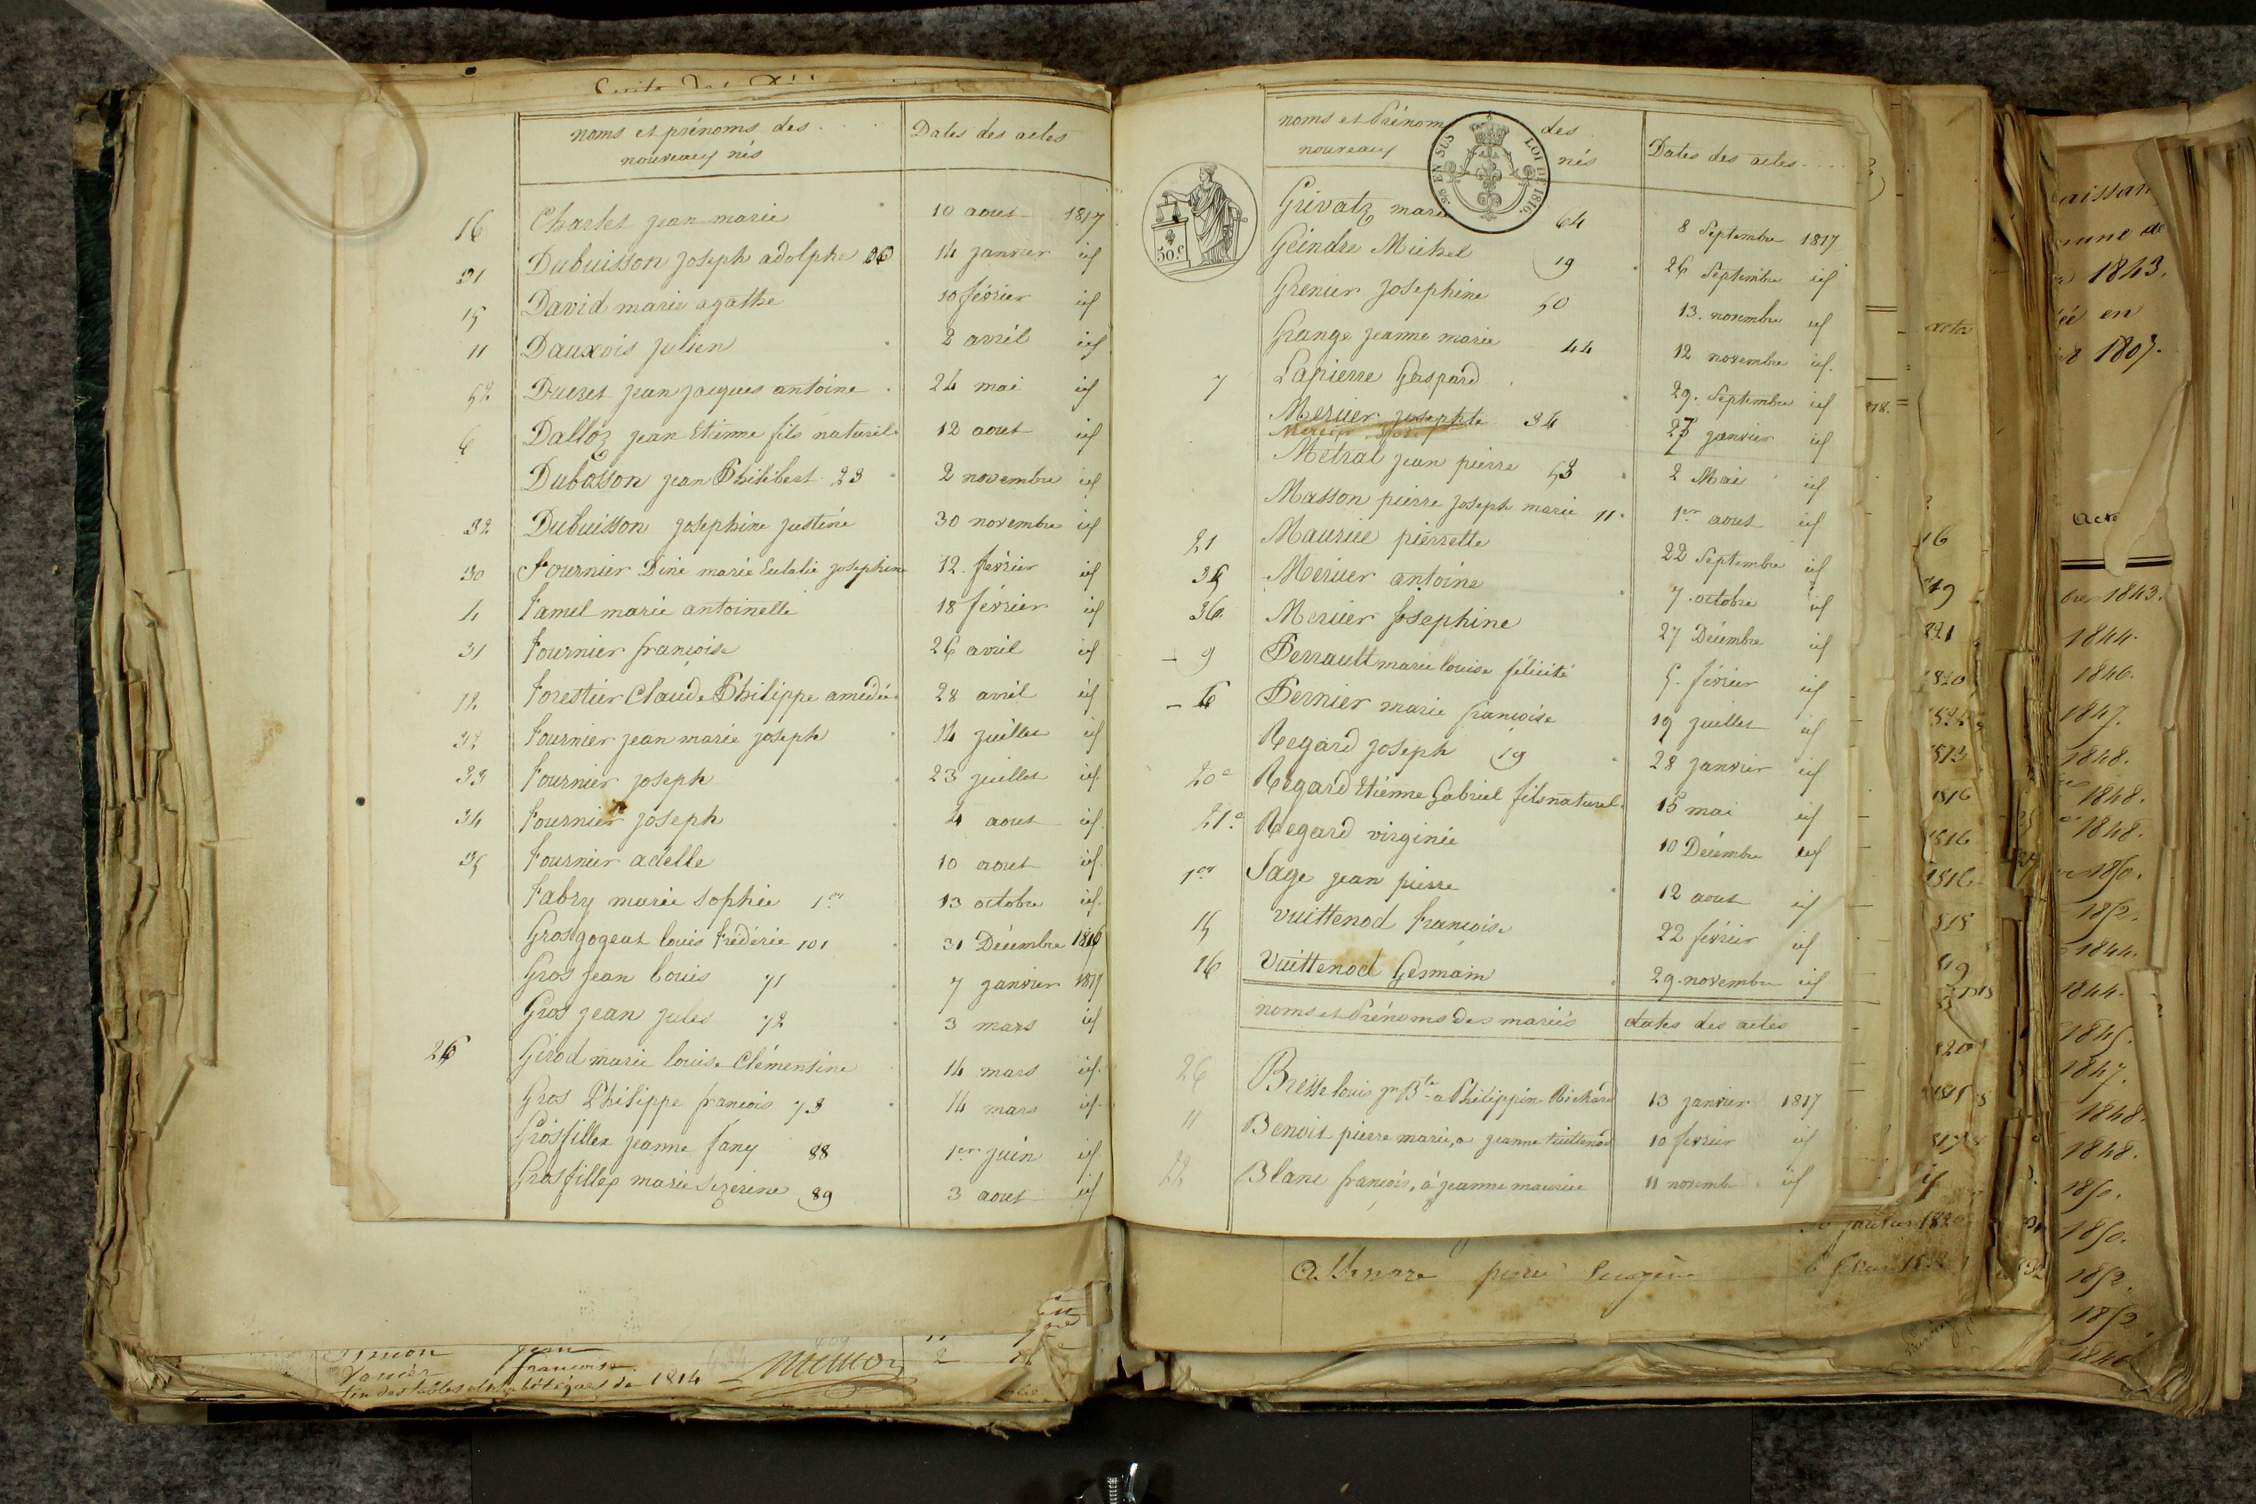 noms et prénoms des
nouveaux nés
Dates des actes
16 Charlet jean marie 10 aout 1817
31 Dubuisson joseph adolphe 14 janvier id
15 David marie agathe 10 février id
11 Dauxois julien 2 avril id
52 Ducret jean jacques antoine 24 mai id
6 Dalloz jean Etienne fils naturel 12 aout id
Dubosson jean Philibert 23 2 novembre id
32 Dubuisson josephine justine 30 novembre id
30 Fournier Dine marie Eulalie josephine 12 février id
4 famel marie antoinette 18 février id
31 fournier françoise 26 avril id
12 forestier Claude Philippe amédée 28 avril id
32 fournier jean marie joseph 14 juillet id
33 fournier joseph 23 juillet id
34 fournier joseph 4 aout id
35 fournier adelle 10 aout id
fabry marie sophie 1er 13 octobre id
Grosgogeat louis frédéric 101 31 Décembre 1816
Gros jean louis 71 7 janvier 1817
Gros jean jules 72 3 mars id
26 Girod marie louise Clémentine 14 mars id
Gros Philippe françois 73 14 mars id
Grosfillex jeanne fany 88 1er juin id
Grosfillex marie sezerine 89 3 aout id
noms et Prénoms des
nouveaux nés
Dates des actes
3es EN SUS LOI DE 1816.
50.c
Grivatz marie 64 8 Septembre 1817
Geindre Michel 19 26 Septembre id
Grenier josephine 50 13 novembre id
Grange jeanne marie 44 12 novembre id
7 Lapierre Gaspard 29 Septembre id
Mercier josephte 34 27 janvier id
Metral jean pierre 53 2 Mai id
Masson pierre joseph marie 11 1er aout id
21 Maurice pierrette 22 Septembre id
35 Mercier antoine 7 octobre id
36 Mercier Josephine 27 Décembre id
9 Perrault marie louise félicité 5 février id
6 Pernier marie françoise 19 juillet id
Regard joseph 19 28 janvier id
20e Regard Etienne Gabriel fils naturel 15 mai id
21e Regard virginie 10 Décembre id
1er Sage jean pierre 12 aout id
15 vuittenod françoise 22 février id
16 Vuittenod Germain 29 novembre id
noms et Prénoms des mariés dates des actes
26 Bresse louis jn Bte a Philippine Richard 13 janvier 1817
11 Benoit pierre marie, a jeanne vuittenod 10 fevrier id
22 Blanc françois, à jeanne maurice 11 novembre id
Simon jean
Vanier françoise
fin des tables alphabétiques de 1814
pierre Eugène
1843.
en
1807.
acte
1843.
1844.
1846.
1847.
1848.
1848.
1848.
1850.
1852.
1844.
1844.
1845.
1847.
1848.
1848.
1850.
1850.
1852.
1852.